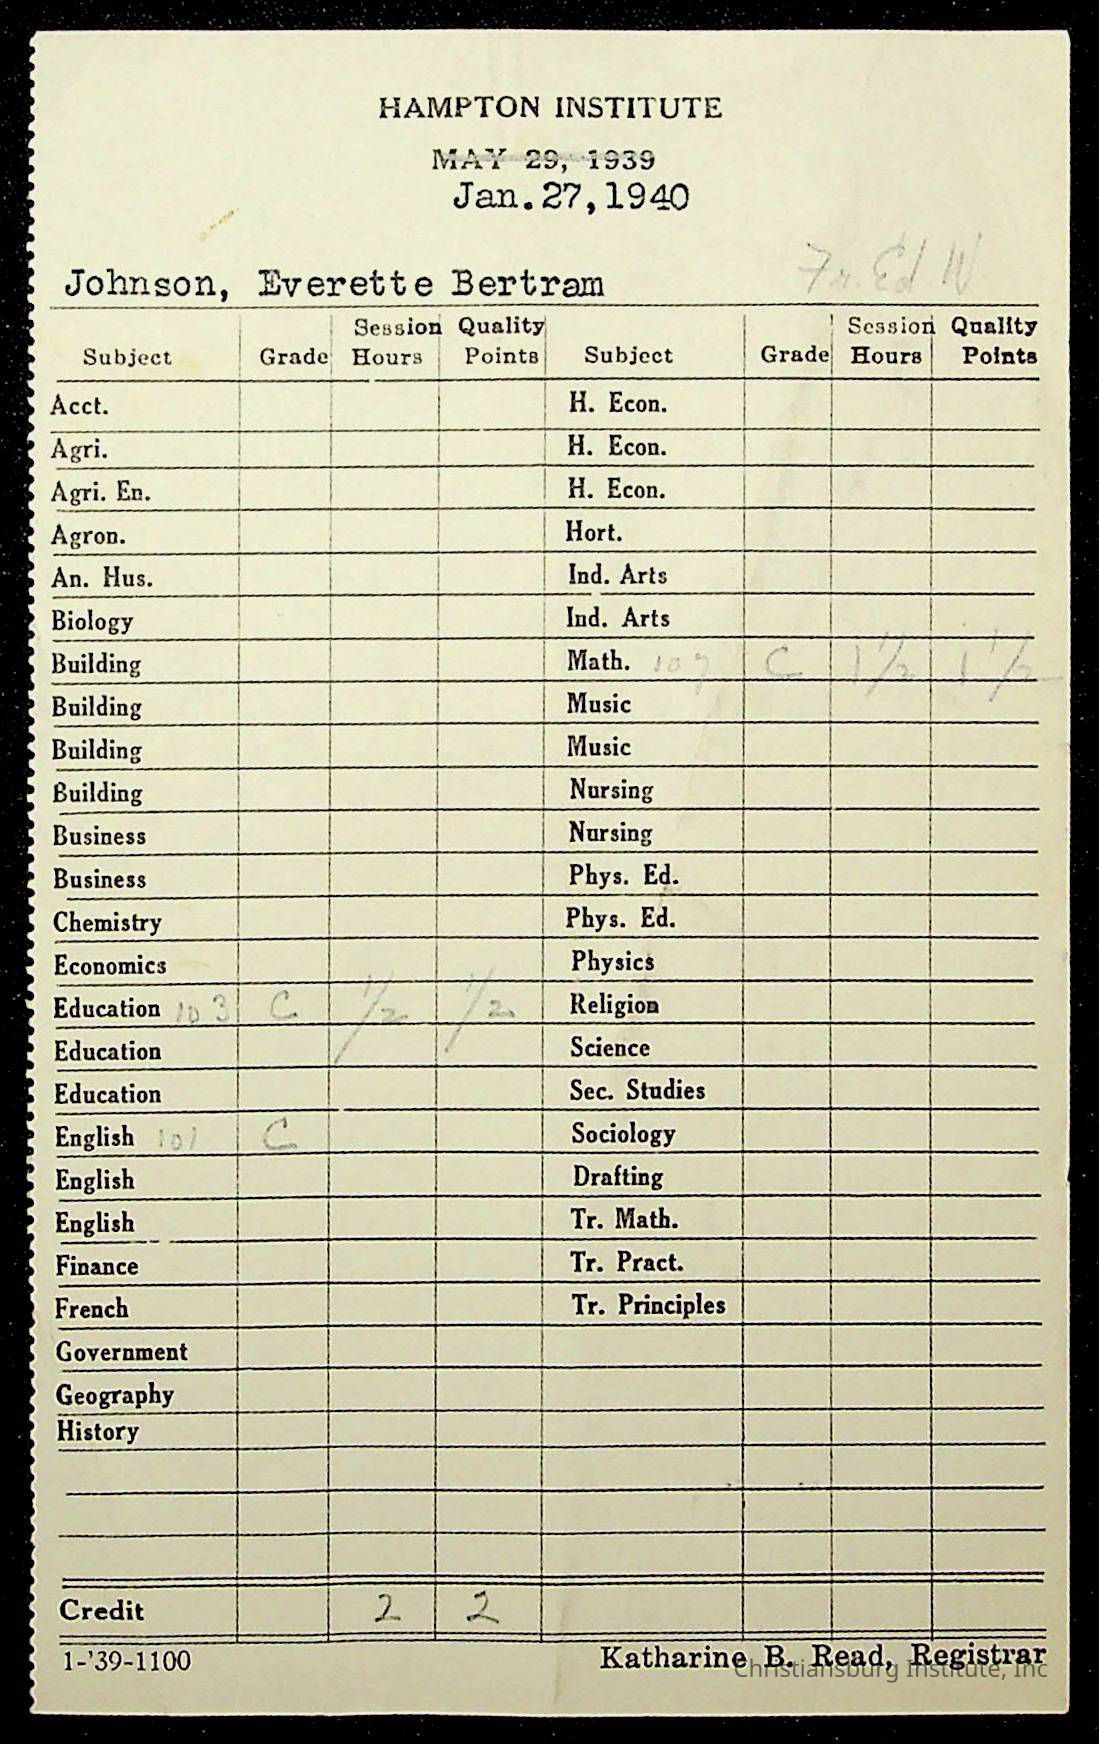 HAMPTON INSTITUTE
MAY 29, 1939
Jan.27,1940
Johnson, Everette Bertram Fr. Ed W
Subject Grade Session Hours Quality Points Subject Grade Session Hours Quality Points
Acct. H. Econ.
Agri. H. Econ.
Agri. En. H. Econ.
Agron. Hort.
An. Hus. Ind. Arts
Biology Ind. Arts
Building Math. 107 C 1 1/2 1 1/2
Building Music
Building Music
Building Nursing
Business Nursing
Business Phys. Ed.
Chemistry Phys. Ed.
Economics Physics
Education 103 C 1/2 1/2 Religion
Education Science
Education Sec. Studies
English 101 C Sociology
English Drafting
English Tr. Math.
Finance Tr. Pract.
French Tr. Principles
Government
Geography
History
Credit 2 2
1-'39-1100 Katharine B. Read, Registrar
Christiansburg Institute, Inc